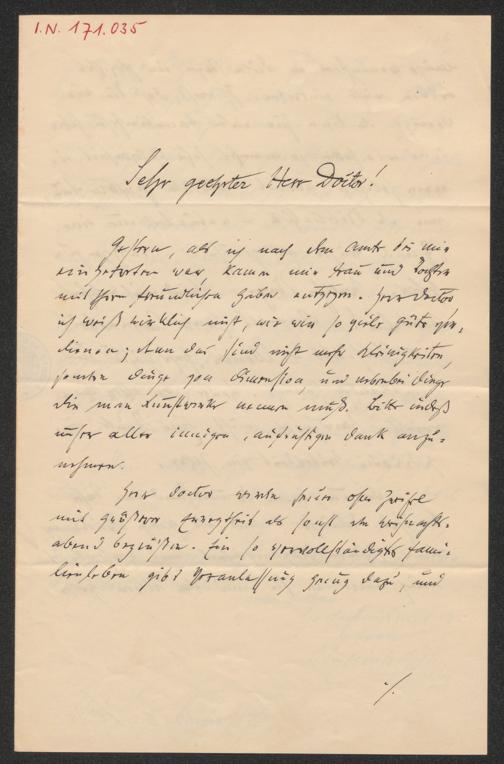 I.N. 171.035
Sehr geehrter Herr Doctor!
Gestern, als ich nach dem Amte bei mir
eingetreten war, kamen mir Frau und Tochter
mit Ihren freundlichen Gaben entgegen. Herr Doctor
ich weiß wirklich nicht, wie wir so viele Güte ver-
dienen; denn das sind nicht mehr Kleinigkeiten,
sondern Dinge von Dimension, und nebenbei Dinge
die man Kunstwerke nennen muß. Bitte indeß
unser aller innigen, aufrichtigen Dank anzu-
nehmen.
Herr Doctor werden heuer ohne Zweifel
mit größerer als sonst den Weihnachts-
abend begrüßen. Ein so vervollständigtes Fami-
lienleben gibt Veranlassung genug dazu, und
./.